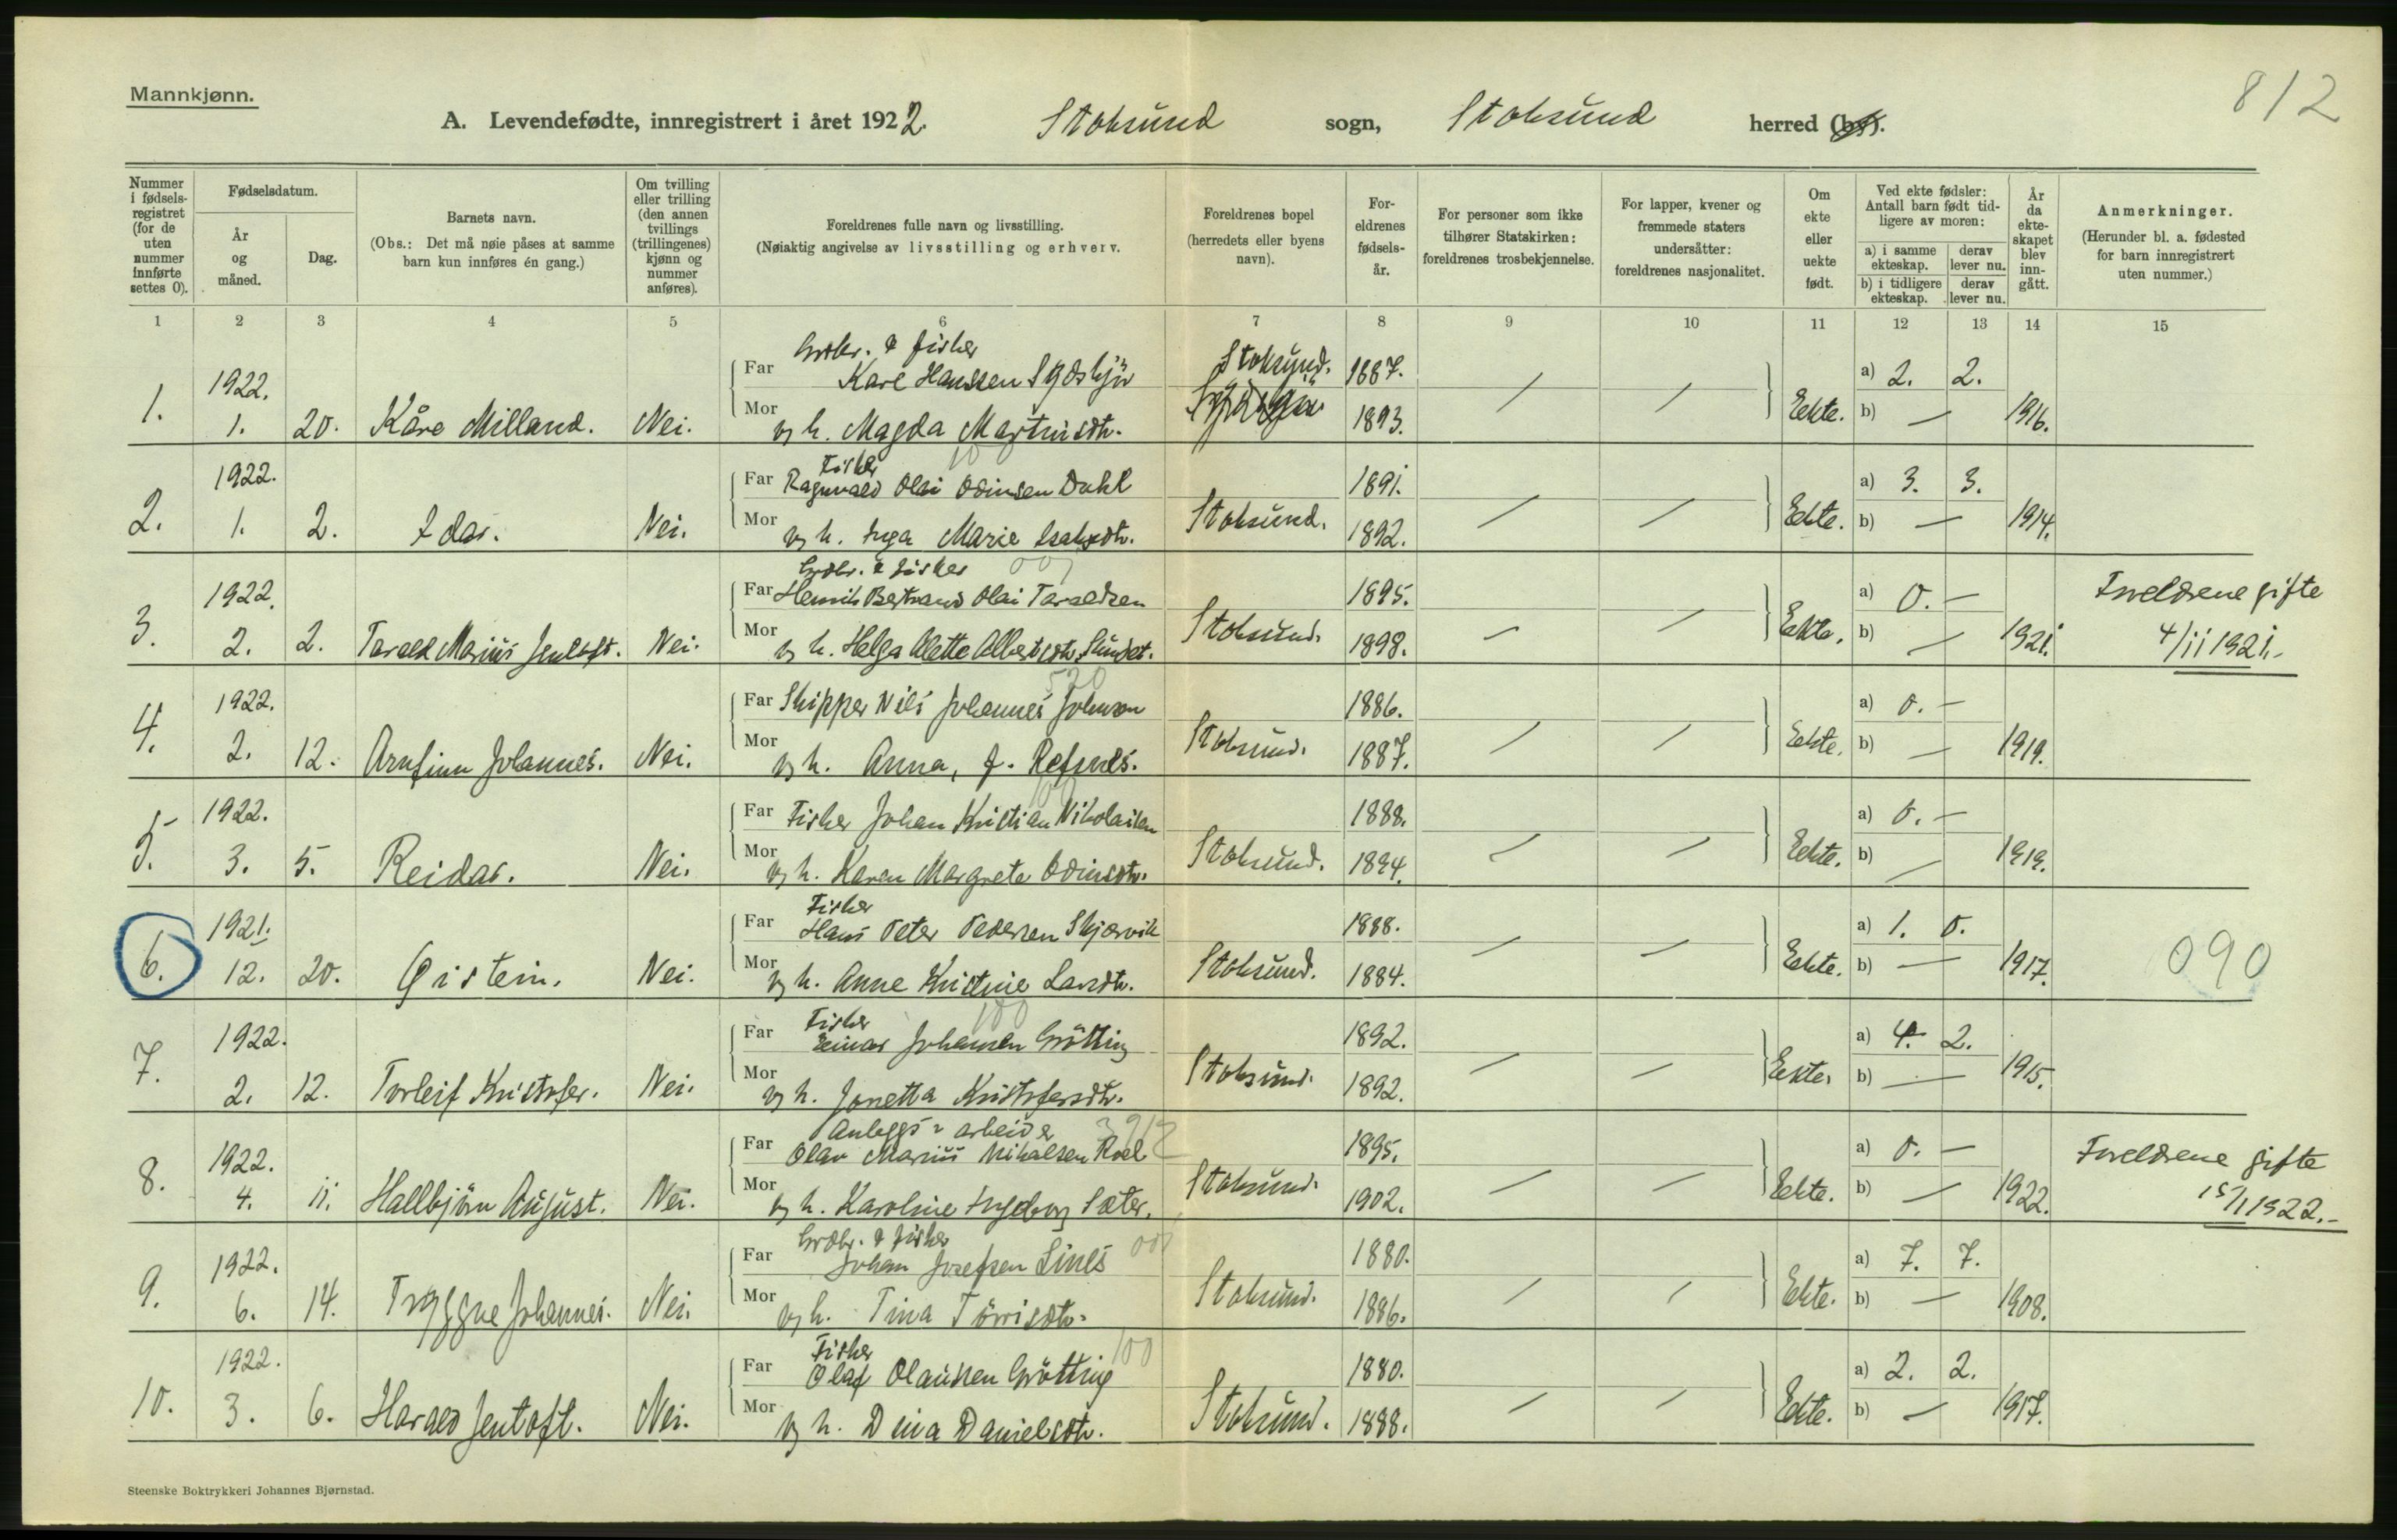 Mannkjønn.
812
A. Levendefødte, innregistrert i året 1922. Stoksund sogn, Stoksund herred (by).
Nummer i fødselsregistret (for de uten nummer innførte settes 0).
Fødselsdatum.
År og måned.
Dag.
Barnets navn.
(Obs.: Det må nøie påses at samme barn kun innføres én gang.)
Om tvilling eller trilling (den annen tvillings (trillingenes) kjønn og nummer anføres).
Foreldrenes fulle navn og livsstilling.
(Nøiaktig angivelse av livsstilling og erhverv.
Foreldrenes bopel (herredets eller byens navn).
Foreldrenes fødselsår.
For personer som ikke tilhører Statskirken: foreldrenes trosbekjennelse.
For lapper, kvener og fremmede staters undersåtter: foreldrenes nasjonalitet.
Om ekte eller uekte født.
Ved ekte fødsler: Antall barn født tidligere av moren:
a) i samme ekteskap.
derav lever nu.
b) i tidligere ekteskap.
derav lever nu.
År da ekteskapet blev inngått.
Anmerkninger.
(Herunder bl. a. fødested for barn innregistrert uten nummer.)
1 2 3 4 5 6 7 8 9 10 11 12 13 14 15
Grdbr. & fisker
1922. Far Karl Hanssen Stoksund. 1887. a) 2. 2.
1. 1. 20. Kåre Milland. Nei. Mor og h. Magda Martinsdtr. 1893. / / Ekte. b) — 1916.
100
Fisker
1922. Far Ragnvald Olai Odinsen Dahl 1891. a) 3. 3.
2. 1. 2. Idar. Nei. Mor og h. Inga Marie Isaksdtr. Stoksund. 1892. / / Ekte. b) — 1914.
Grdbr. & fisker 007
1922. Far Henrik Bertrand Olai Taraldsen 1895. a) 0. — Foreldrene gifte
3. 2. 2. Tarald Marius Jentoft. Nei. Mor og h. Helga Alette Albertsdtr. Sundet. Stoksund. 1898. / / Ekte. b) — 1921. 4/11 1921.-
520
1922. Far Skipper Nils Johannes Johnson 1886. a) 0. —
4. 2. 12. Arnfinn Johannes. Nei. Mor og h. Anna, f. Refsnes. Stoksund. 1887. / / Ekte. b) — 1919.
100
1922. Far Fisker Johan Kristian Nikolaisen 1888. a) 0. —
5. 3. 5. Reidar. Nei. Mor og h. Karen Margrete Odinsdtr. Stoksund. 1894. / / Ekte. b) — 1919.
Fisker
1921. Far Hans Peter Pedersen Skjærvik 1888. a) 1. 0.
6. 12. 20. Øistein. Nei. Mor og h. Anne Kristine Larsdtr. Stoksund. 1884. — — Ekte. b) — 1917. 090
Fisker 100
1922. Far Einar Johansen Grötting 1892. a) 4. 2.
7. 2. 12. Torleif Kristofer. Nei. Mor og h. Jonetta Kristofersdtr. Stoksund. 1892. / / Ekte. b) — 1915.
Anleggs- arbeider
1922. Far Olav Marius Mikalsen Roel 1895. a) 0. — Foreldrene gifte
8. 4. 11. Hallbjörn August. Nei. Mor og h. Karoline Ingeborg Sæter. Stoksund. 1902. / / Ekte. b) — 1922. 15/1 1922.-
Grdbr. & fisker 007
1922. Far Johan Josefsen Linés 1880. a) 7. 7.
9. 6. 14. Tryggve Johannes. Nei. Mor og h. Tina Törrisdtr. Stoksund. 1886. / / Ekte. b) — 1908.
Fisker 100
1922. Far Olaf Olaussen Grötting 1880. a) 2. 2.
10. 3. 6. Harald Jentoft. Nei. Mor og h. Dina Danielsdtr. Stoksund. 1888. / / Ekte. b) — 1917.
Steenske Boktrykkeri Johannes Bjørnstad.